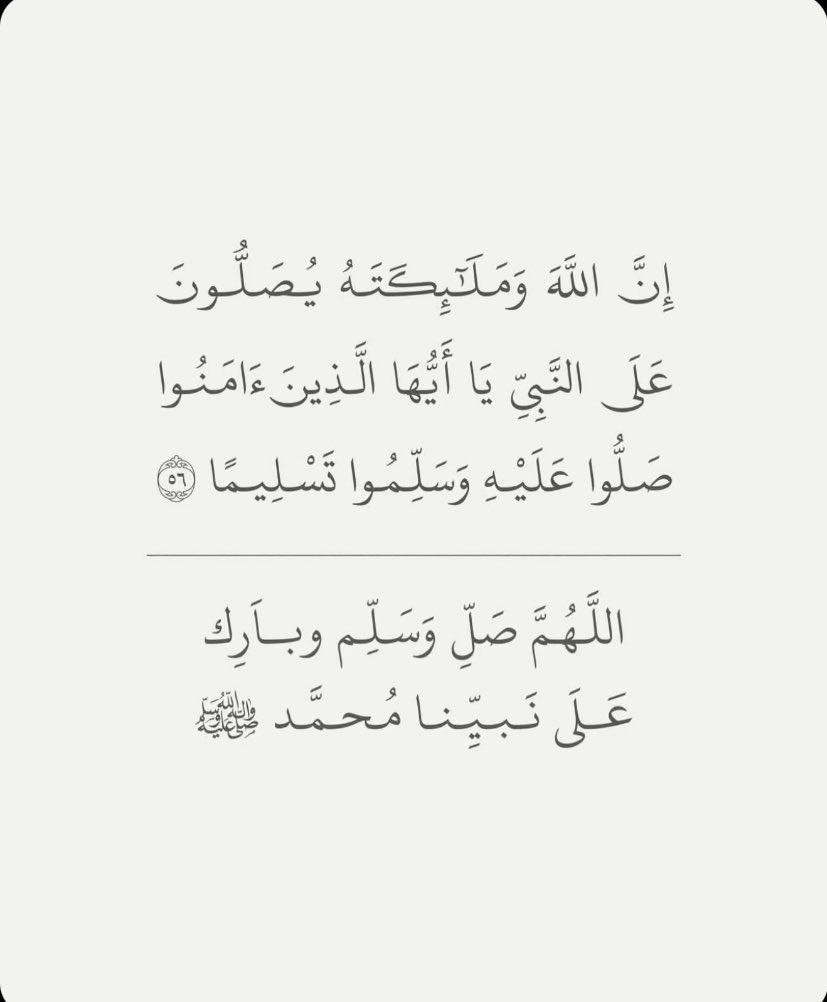 إِنَّ اللَّهَ وَمَلَـٰٓئِكَتَهُ يُصَلُّونَ
عَلَى النَّبِيِّ يَا أَيُّهَا الَّذِينَ ءَامَنُوا
صَلُّوا عَلَيْهِ وَسَلِّمُوا تَسْلِيمًا ٥٦
اللَّهُمَّ صَلِّ وَسَلِّم وباَرِك
عَلَى نَبيِّنا مُحمَّد ﷺ